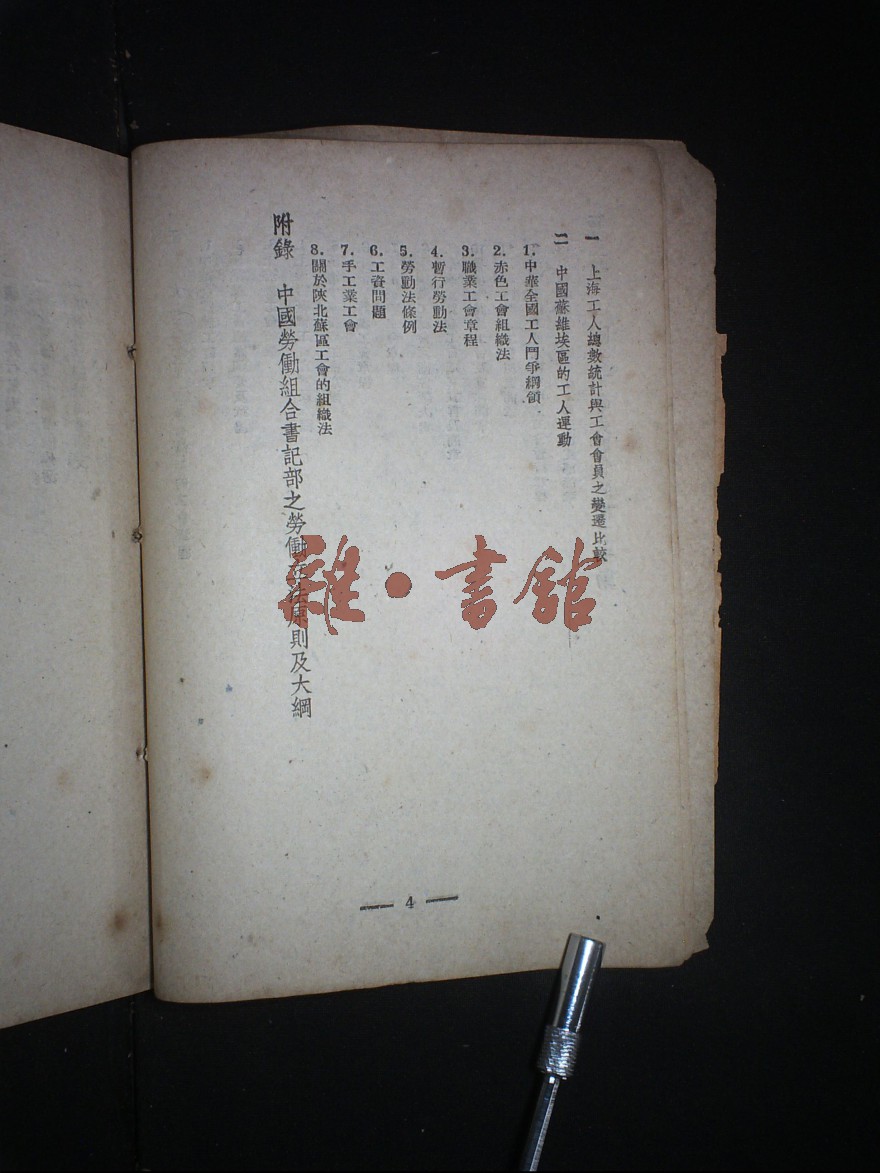 一 上海工人總數統計與工會會員之變遷比較
二 中國蘇維埃區的工人運動
1. 中華全國工人鬥爭綱領
2. 赤色工會組織法
3. 職業工會章程
4. 暫行勞動法
5. 勞動法條例
6. 工資問題
7. 手工業工會
8. 關於陝北蘇區工會的組織法
附錄 中國勞働組合書記部之勞働立法原則及大綱
— 4 —
雜·書館